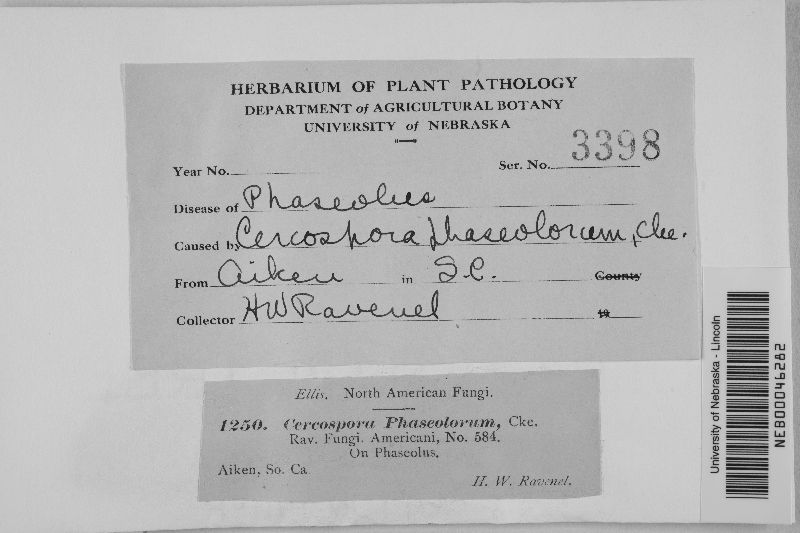 HERBARIUM OF PLANT PATHOLOGY
DEPARTMENT of AGRICULTURAL BOTANY
UNIVERSITY of NEBRASKA
Year No. Ser. No. 3398
Disease of Phaseolus
Caused by Cercospora phaseolorum, Cke.
From Aiken in S.C. County
Collector HW Ravenel 19
Ellis. North American Fungi.
1250. Cercospora Phaseolorum, Cke.
Rav. Fungi. Americani, No. 584.
On Phaseolus.
Aiken, So. Ca
H. W. Ravenel.
University of Nebraska - Lincoln
NEB00046282